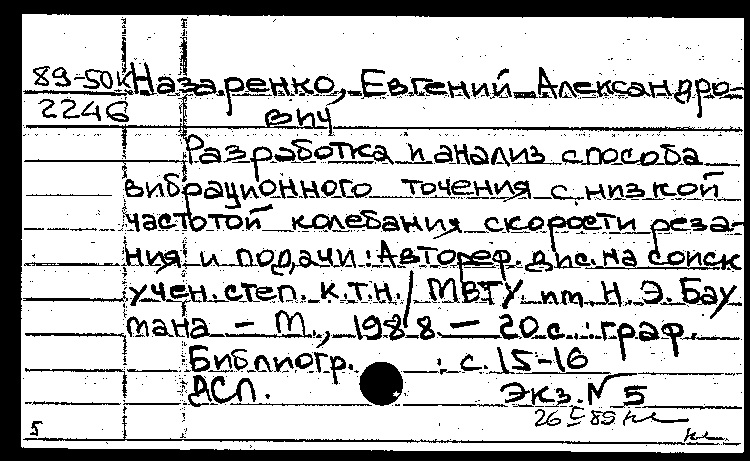 89-50к Назаренко, Евгений Александро-
2246 вич
Разработка и анализ способа
вибрационного точения с низкой
частотой колебания скорости реза-
ния и подачи: Автореф. дис. на соиск
учен. степ. к.т.н. / МВТУ им. Н. Э. Бау
мана - М., 1988. - 20 с.: граф.
Библиогр. : с. 15-16
ДСП. Экз. № 5
26 5 89
5